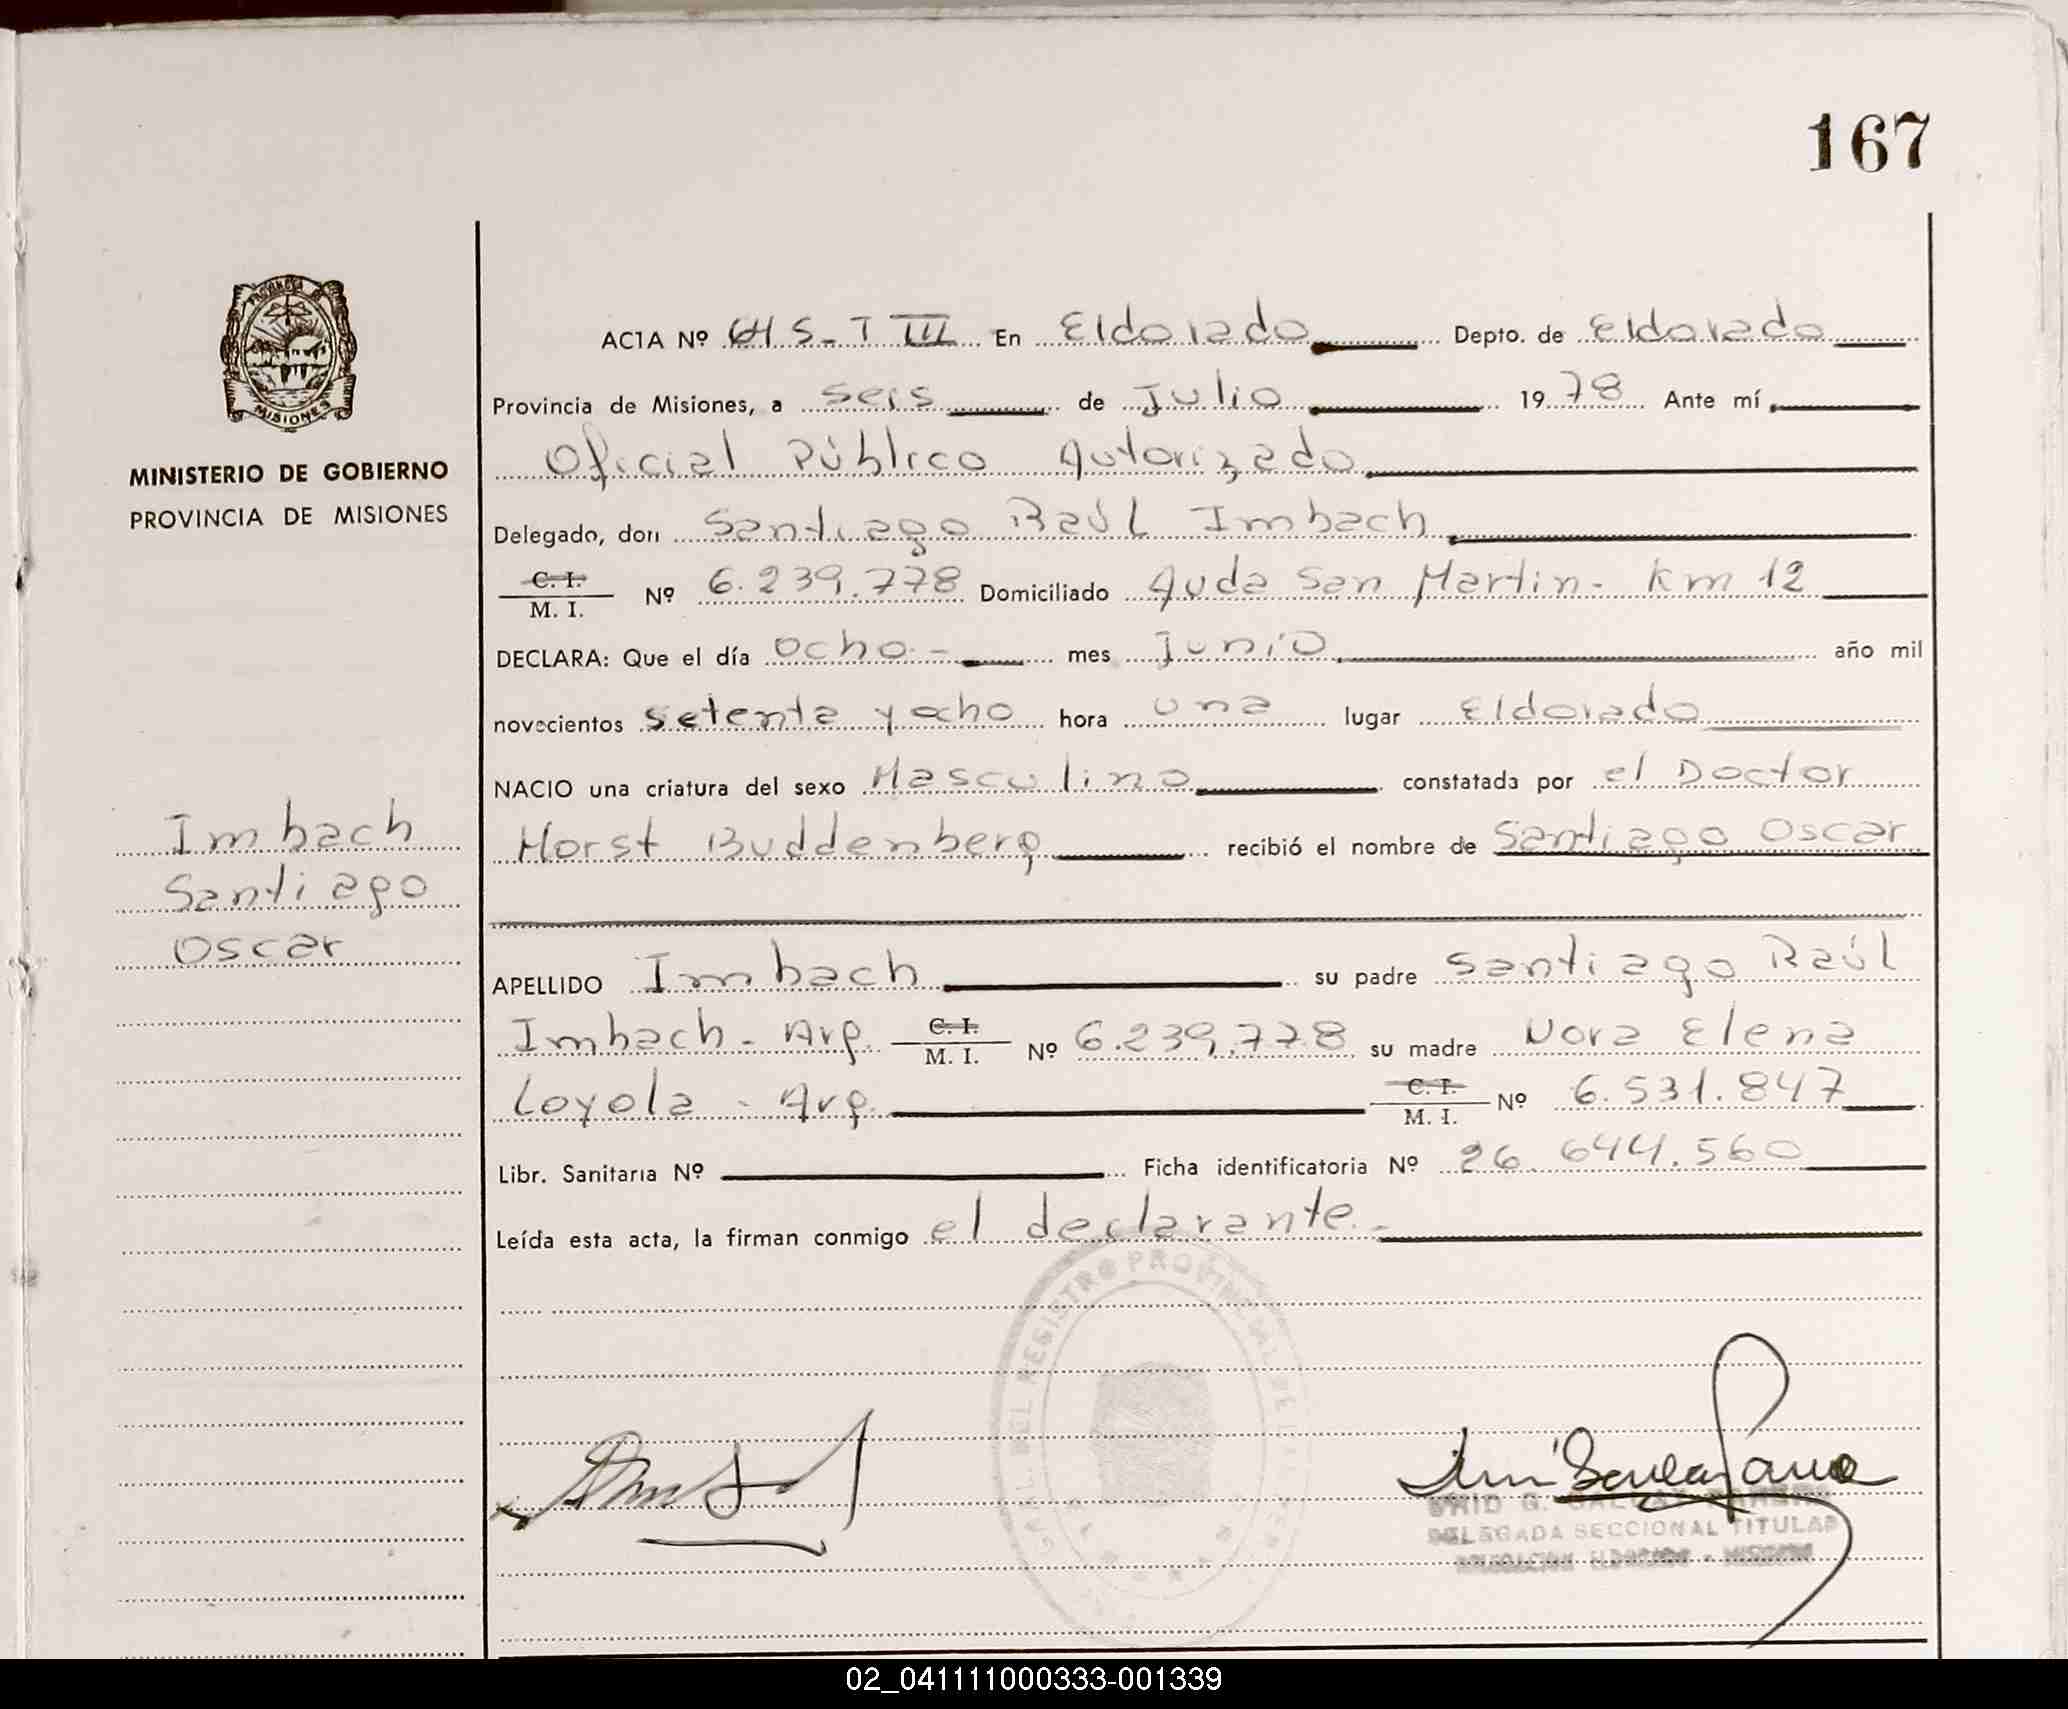 167
MINISTERIO DE GOBIERNO
PROVINCIA DE MISIONES
Imbach
Santiago
Oscar
ACTA Nº 645-T III En Eldorado Depto. de Eldorado
Provincia de Misiones, a seis de Julio 1978 Ante mí,
Oficial Público Autorizado
Delegado, don Santiago Raúl Imbach
C. I. / M. I. Nº 6.239.778 Domiciliado Avda San Martin - Km 12
DECLARA: Que el día ocho - mes Junio año mil
novecientos setenta y ocho hora una lugar Eldorado
NACIO una criatura del sexo Masculino constatada por el Doctor
Horst Buddenberg recibió el nombre de Santiago Oscar
APELLIDO Imbach su padre Santiago Raúl
Imbach - Arg. C. I. / M. I. Nº 6.239.778 su madre Nora Elena
Loyola - Arg. C. I. / M. I. Nº 6.531.847
Libr. Sanitaria Nº Ficha identificatoria Nº 26.644.560
Leída esta acta, la firman conmigo el declarante.-
REGISTRO PROVINCIAL DE
DELEGADA SECCIONAL TITULAR
02_041111000333-001339